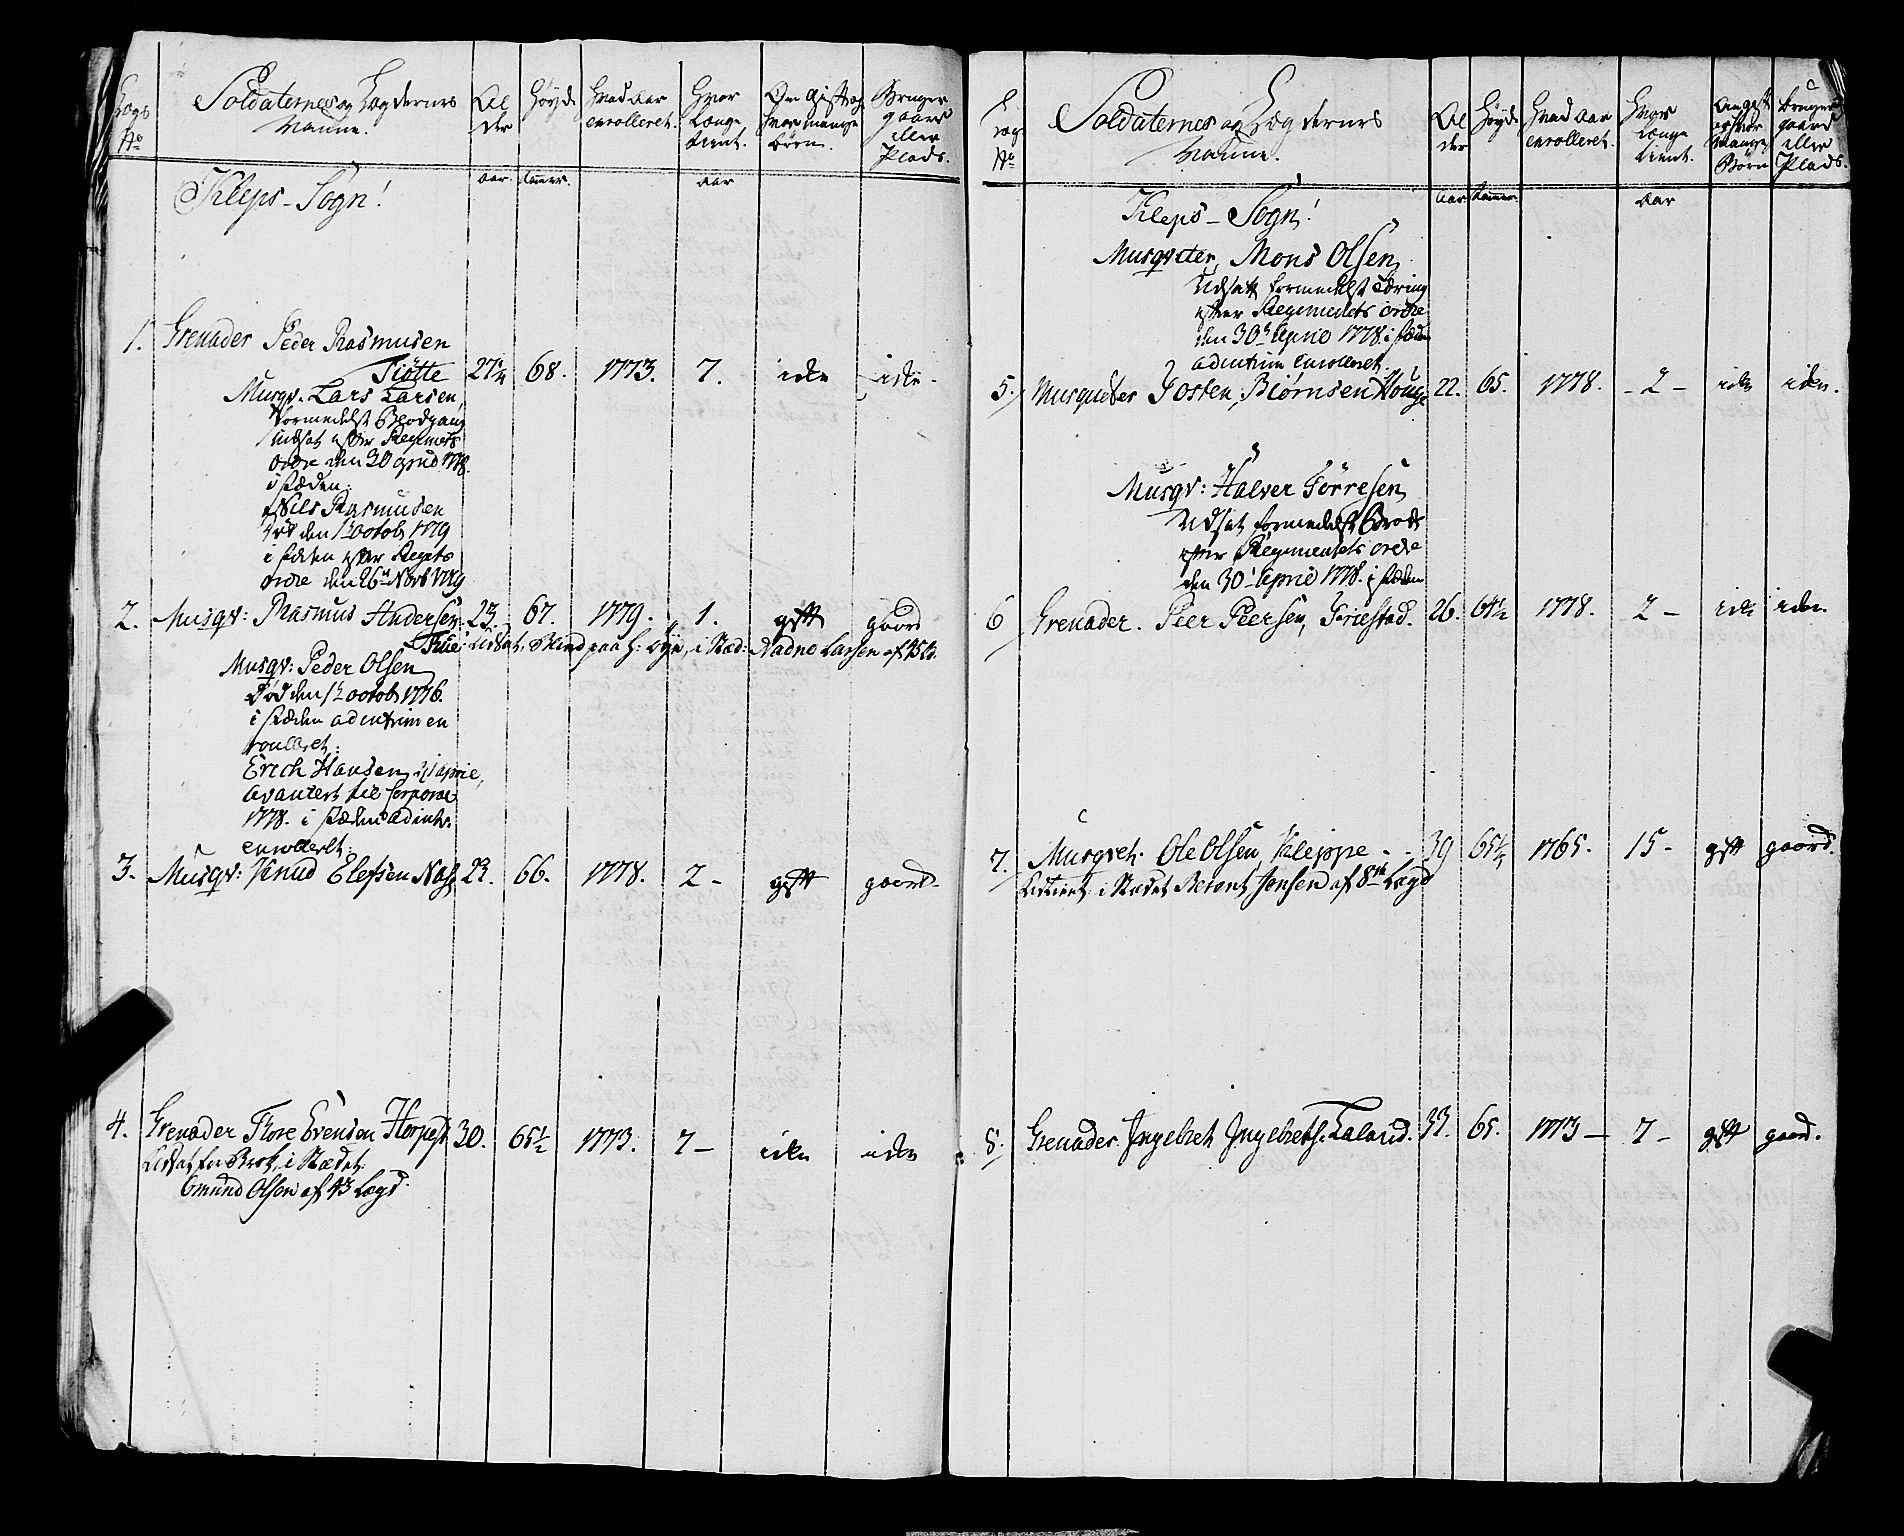 Lægs No
Soldaternes og Lægdernes Naune.
Alder
Høyde
Hvad aar enrolleret.
Hvor Længe tient.
Om Gift og hvor mange børn.
Bruger gaard eller Plads.
aar. tomer. aar
Kleps-Sogn!
1. Grenader Peder Rasmusen
Tiøtte 27 1/4 68. 1773. 7. icke icke.
Musqv. Lars Larsen,
formedelst Blodgang
udsat efter Regimets
ordre den 30 april 1778.
i stæden:
Nils Rasmusen
død den 1te octob 1779
i stæden efter Regits
ordre den 26n Novb 1779
2. Musqv: Rasmus Andersen 23. 67. 1779. 1. gift gaard
Tiue: udsat, i Stæd: Aadne Larsen af 45 L.
Musqv: Peder Olsen
død den 1te octob 1776.
i stæden adintrim en
roulleret:
Erich Hansen, april,
avancert til Corporal
1778. i stæden adintr.
enrolleret:
3. Musqv: Knud Elefsen Næse 23. 66. 1778. 2 - gift gaard.
4. Grenader Tore Evensen Horpest 30. 65 1/2 1773. 7 - icke icke
Udsat for Brok, i Stædet
Omund Olsen af 43 Lægd.
Lægs No
Soldaternes og Lægdernes Naune.
Alder
Høyde
Hvad aar enrolleret.
Hvor længe tient.
Om gift og hvor Mange Børn
bruger gaard eller Plads.
aar tommer. aar
Kleps-Sogn!
Musqveter, Mons Olsen,
Udsatt formedelst Tæring
efter Regimentets ordre
den 30t April 1778. i stæden
adintrim Enrolleret
5. Musqueter Josten, Biørnsen Houge 22. 65. 1778. - 2 - icke icke.
Musqv: Halver Törresen,
Udsat formedelst Brock
efter Regimentets ordre
den 30t April 1778. i stæden
6 Grenader. Peer Peersen, Friestad. 26. 64 1/2 1778. 2 - icke icke.
7. Musqvet. Ole Olsen, Kleppe - - 39 65 1/4 1765. 15 - gift gaard.
Udtient i Stædet Berent Jonsen af 8de Lægd
8. Grenader Ingebret Ingebrets. Laland. 37. 65. 1773 - 7 - gift gaard.